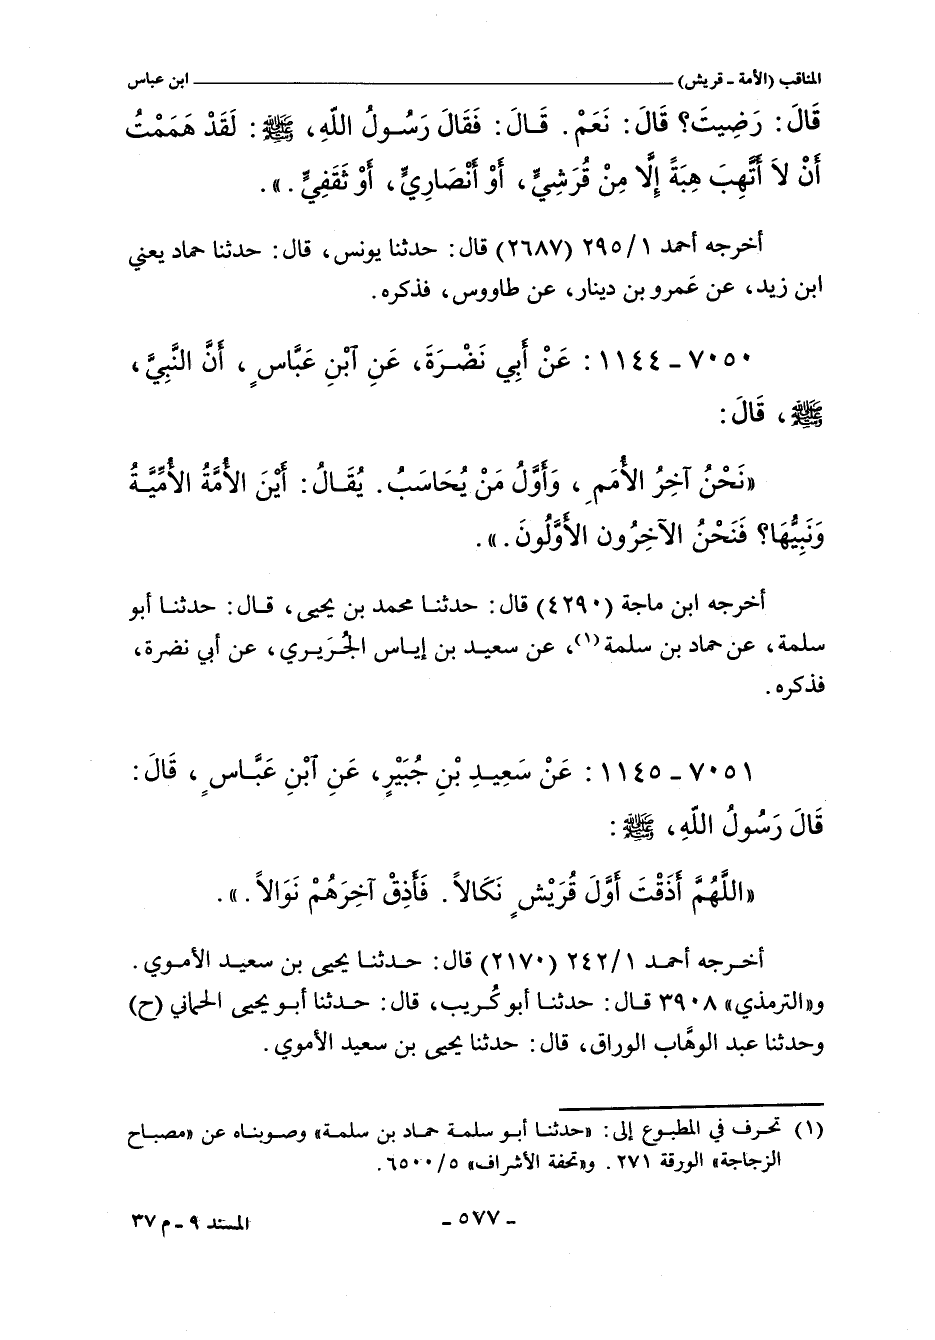 المناقب (الأمة ـ قريش) ـــــــــ ابن عباس
قَالَ: رَضِيتَ؟ قَالَ: نَعَمْ. قَـالَ: فَقَالَ رَسُـولُ اللّهِ، ﷺ: لَقَدْ هَمَمْتُ
أَنْ لاَ أَتَّهِبَ هِبَةً إِلَّا مِنْ قُرَشِيٍّ، أَوْ أَنْصَارِيٍّ، أَوْ ثَقَفِيٍّ.».
أخرجه أحمد ١/ ٢٩٥ (٢٦٨٧) قال: حدثنا يونس، قال: حدثنا حماد يعني
ابن زيد، عن عَمرو بن دينار، عن طاووس، فذكره.
٧٠٥٠ ـ ١١٤٤ : عَنْ أَبِي نَضْـرَةَ، عَنِ آبْنِ عَبَّاسٍ، أَنَّ النَّبِيَّ،
ﷺ، قَالَ:
«نَحْنُ آخِرُ الأُمَمِ، وَأَوَّلُ مَنْ يُحَاسَبُ. يُقَـالُ: أَيْنَ الأُمَّةُ الأُمِّيَّـةُ
وَنَبِيُّهَا؟ فَنَحْنُ الآخِرُون الأَوَّلُونَ.».
أخرجه ابن ماجة (٤٢٩٠) قال: حدثنـا محمد بن يحيى، قـال: حدثنـا أبو
سلمة، عن حماد بن سلمة (١)، عن سعيـد بن إيـاس الجُـرَيـري، عن أبي نضـرة،
فذكره.
٧٠٥١ ـ ١١٤٥ : عَنْ سَعِيـدِ بْنِ جُبَيْرٍ، عَنِ آبْنِ عَبَّـاسٍ، قَالَ:
قَالَ رَسُولُ اللّهِ، ﷺ:
«اللَّهُمَّ أَذَقْتَ أَوَّلَ قُرَيْشٍ نَكَالاً. فَأَذِقْ آخِرَهُمْ نَوَالاً.».
أخـرجه أحمـد ١/ ٢٤٢ (٢١٧٠) قال: حـدثنـا يحيى بن سعيـد الأمـوي.
و«الترمذي» ٣٩٠٨ قـال: حدثنـا أبو كُريب، قال: حدثنـا أبـو يحيى الحماني (ح)
وحدثنا عبد الوهَّاب الوراق، قال: حدثنا يحيى بن سعيد الأموي.
(١) تحـرف في المطبـوع إلى: «حدثنـا أبـو سلمـة حماد بن سلمـة» وصـوبنـاه عن «مصبـاح
الزجاجة» الورقة ٢٧١. و«تحفة الأشراف» ٥/ ٦٥٠٠.
ـ ٥٧٧ ـ
المسند ٩ ـ م ٣٧